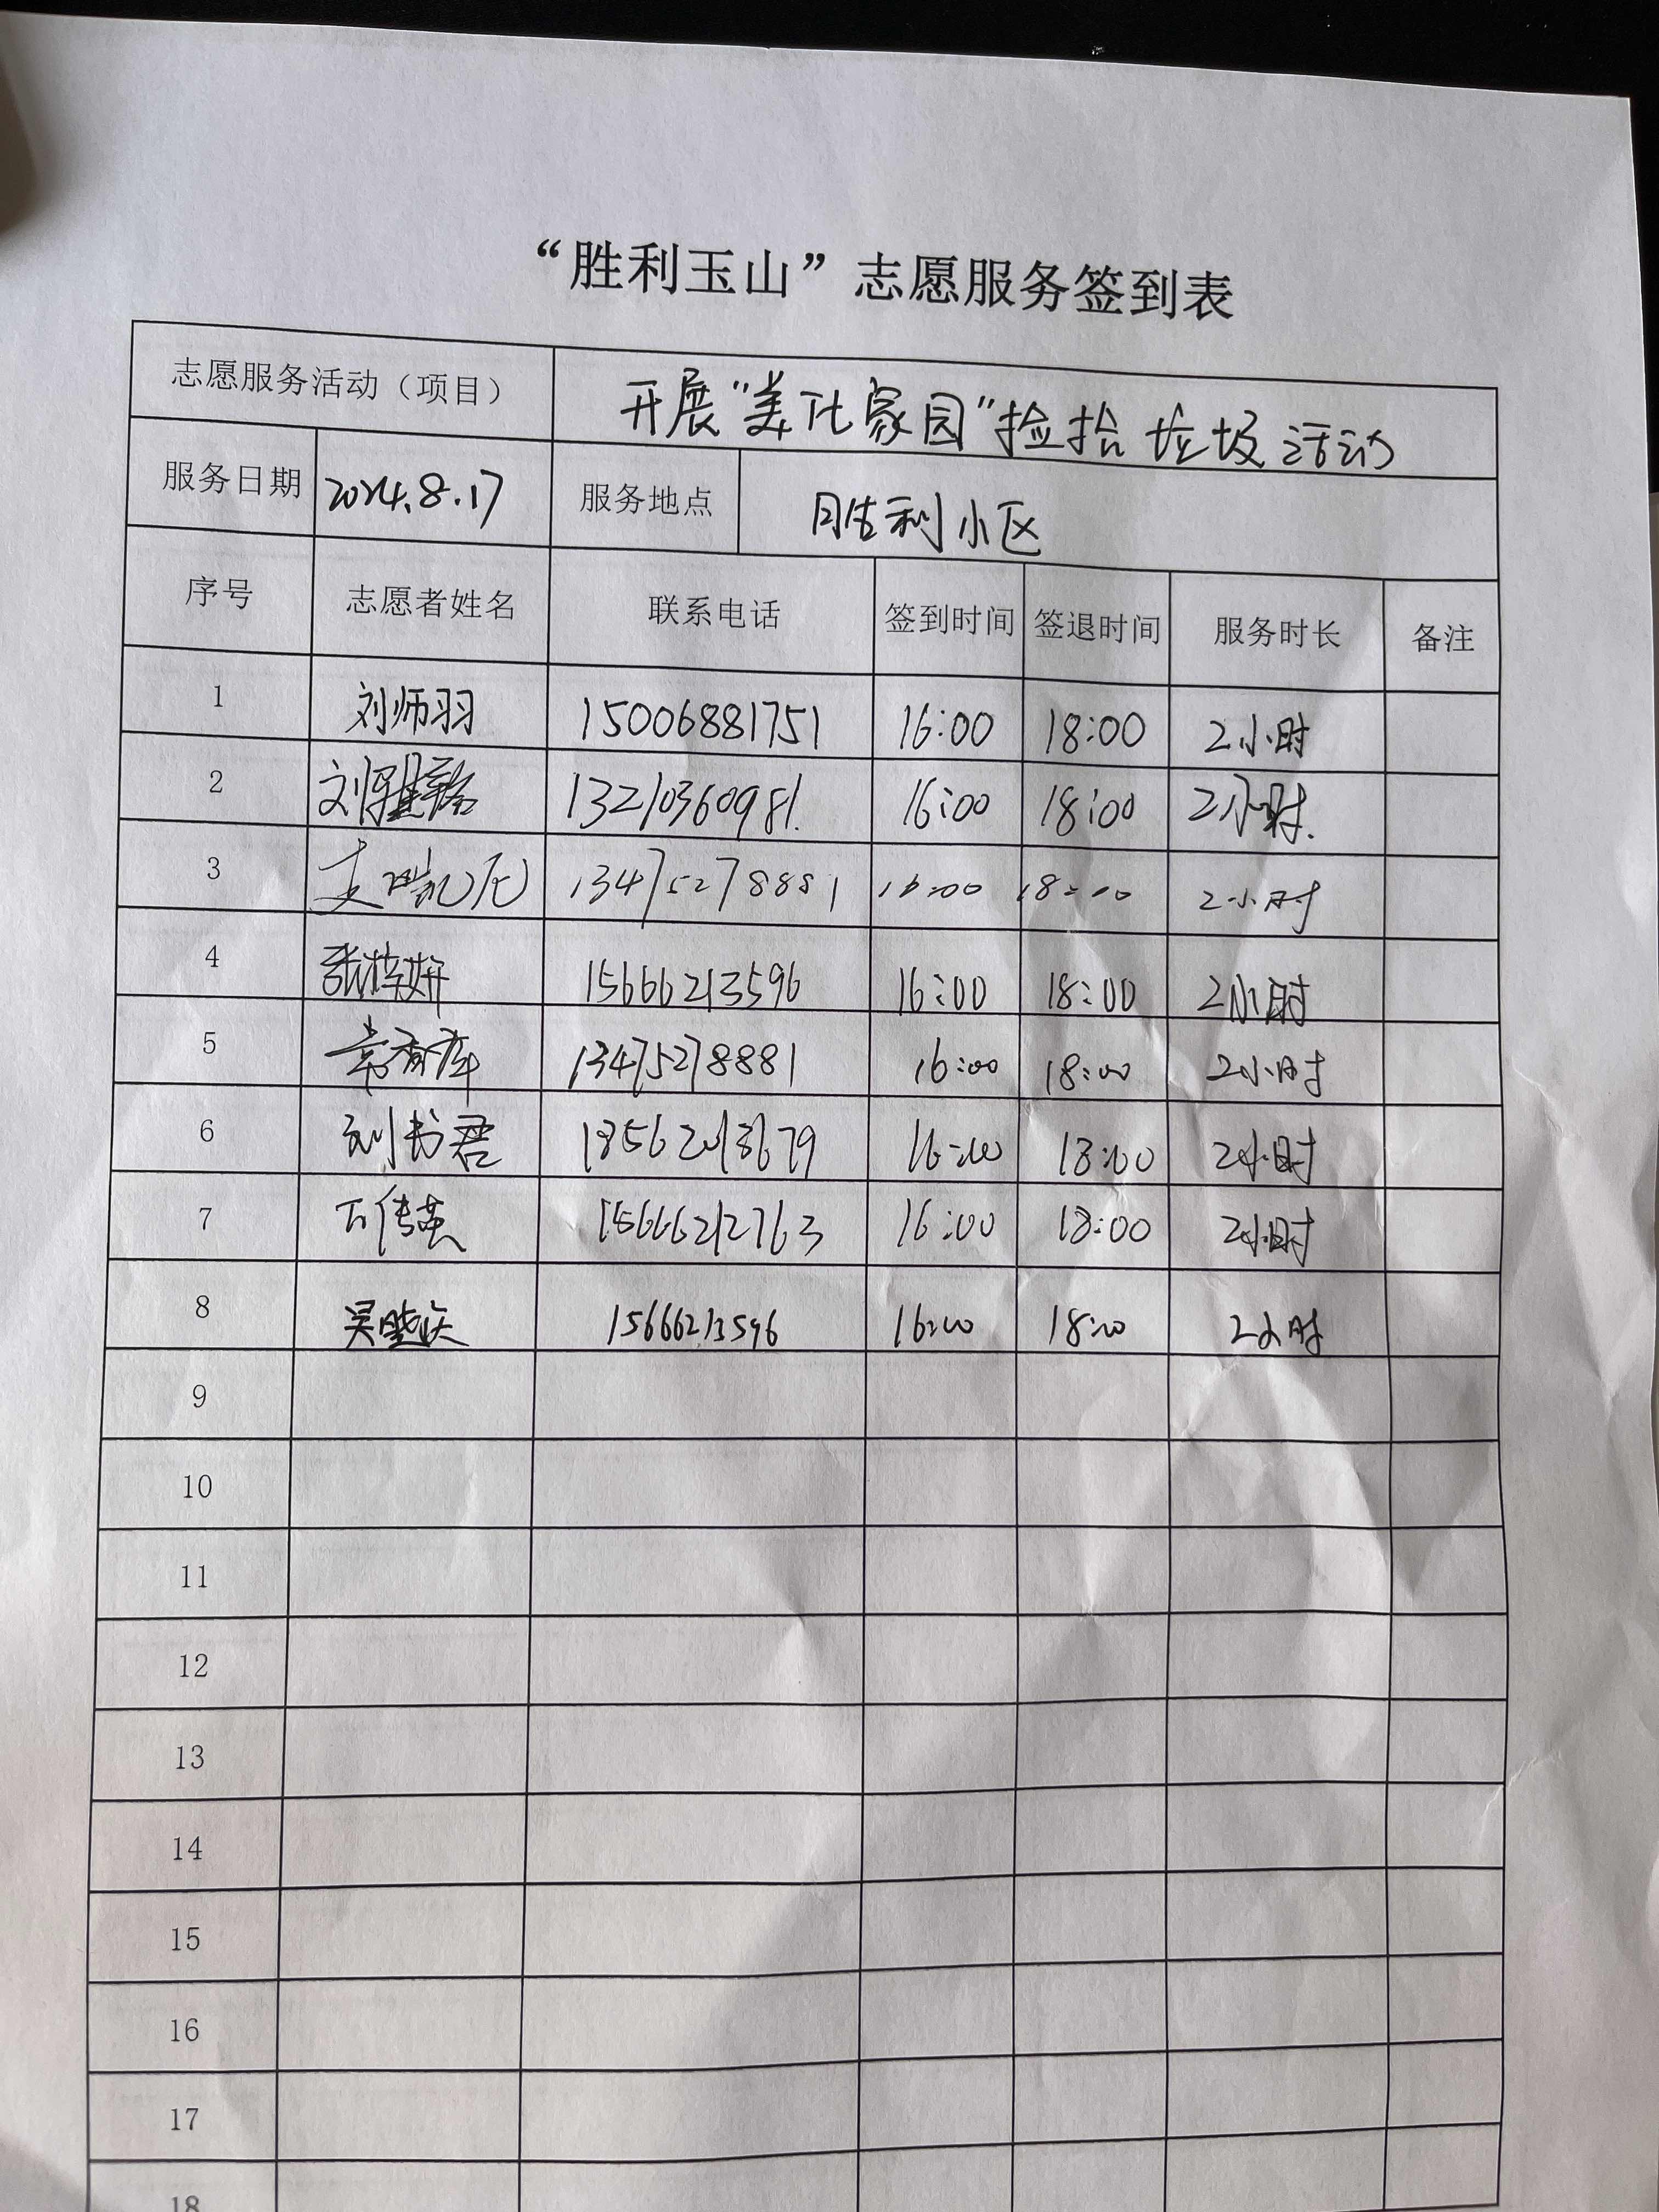 “胜利玉山”志愿服务签到表
志愿服务活动（项目） 开展“美化家园”捡拾垃圾活动
服务日期 2024.8.17 服务地点 胜利小区
序号 志愿者姓名 联系电话 签到时间 签退时间 服务时长 备注
1 刘师羽 15006881751 16:00 18:00 2小时
2 刘雅 13210360981. 16:00 18:00 2小时.
3 13475278881 16:00 18:00 2小时
4 张梓妍 15666213596 16:00 18:00 2小时
5 13475278881 16:00 18:00 2小时
6 刘书君 16:00 18:00 2小时
7 15666212763 16:00 18:00 2小时
8 吴 15666213596 16:00 18:00 2小时
9
10
11
12
13
14
15
16
17
18